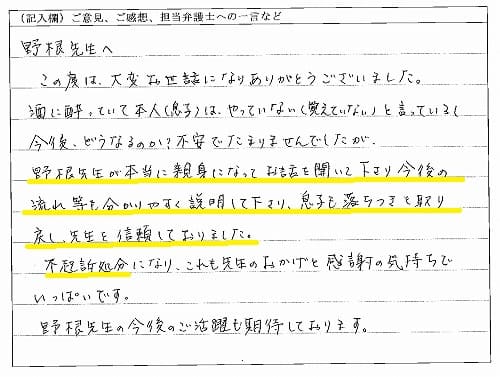 (記入欄) ご意見、ご感想、担当弁護士への一言など
野根先生へ
この度は、大変お世話になりありがとうございました。
酒に酔っていて本人(息子)は、やっていない(覚えていない)と言っているし
今後、どうなるのか?不安でたまりませんでしたが、
野根先生が本当に親身になってお話を聞いて下さり今後の
流れ等も分かりやすく説明して下さり、息子も落ちつきを取り
戻し、先生を信頼しておりました。
不起訴処分になり、これも先生のおかげと感謝の気持ちで
いっぱいです。
野根先生の今後のご活躍も期待しております。